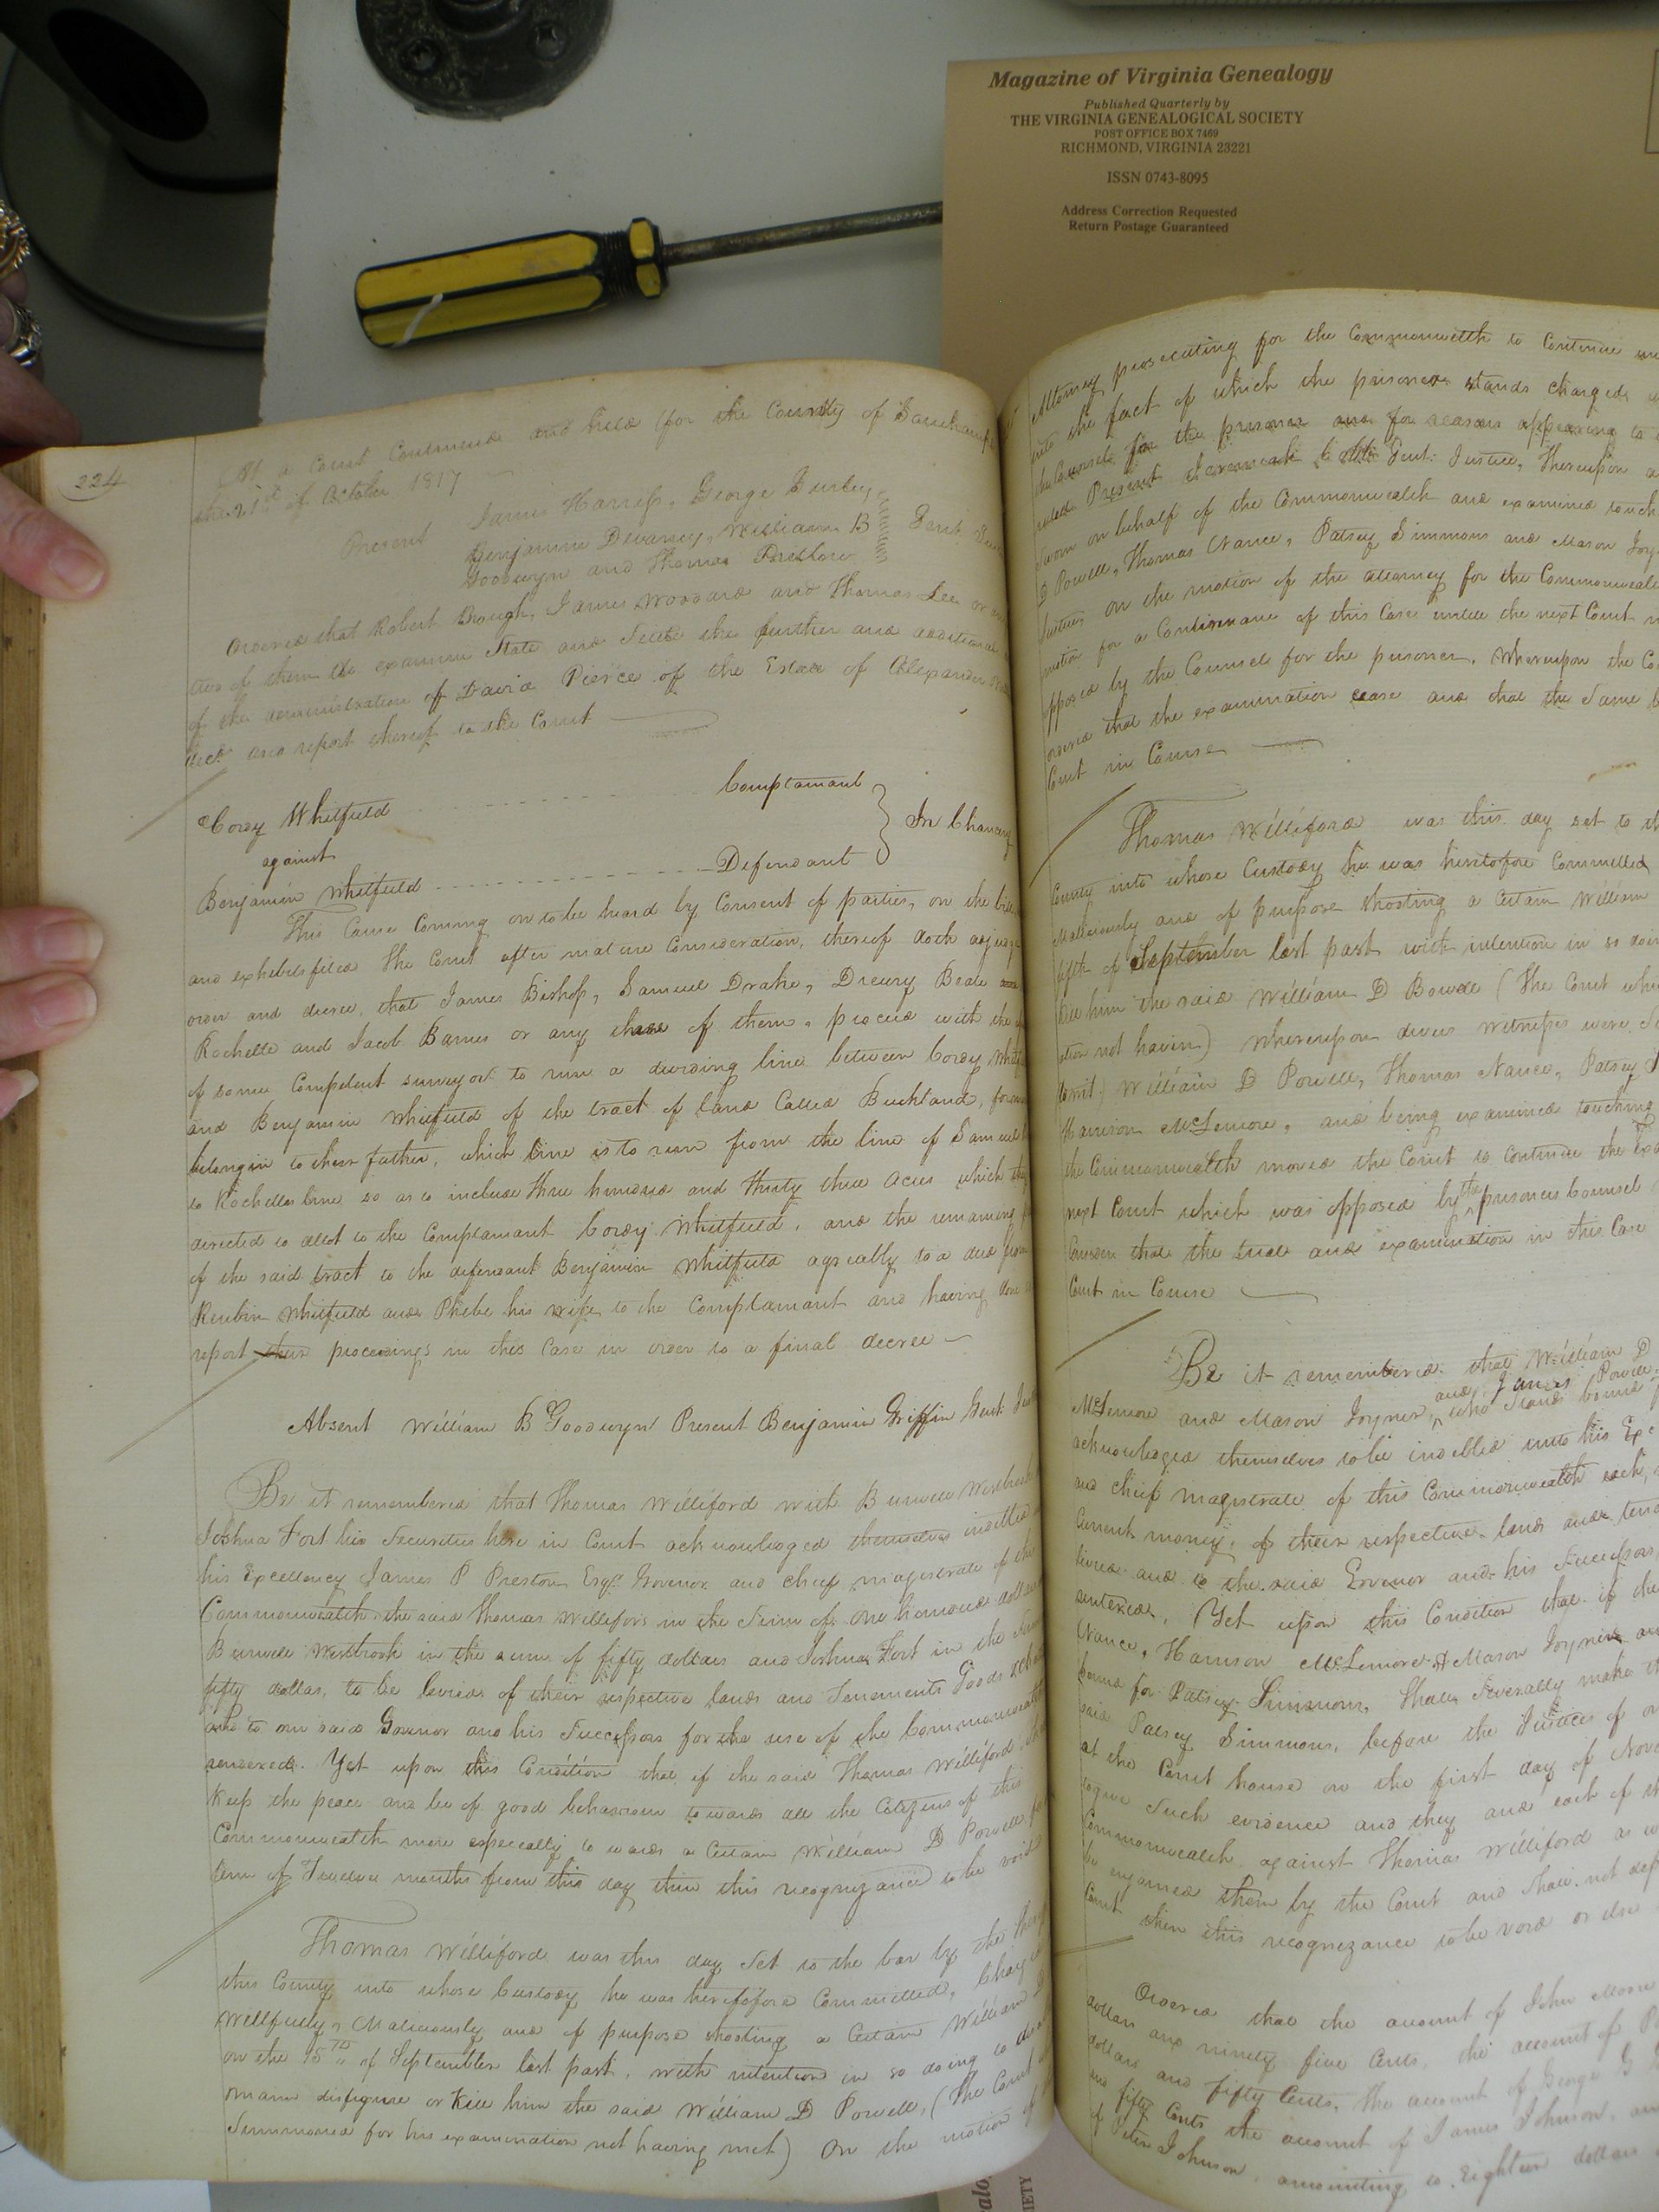 Magazine of Virginia Genealogy
Published Quarterly by
THE VIRGINIA GENEALOGICAL SOCIETY
POST OFFICE BOX 7469
RICHMOND, VIRGINIA 23221
ISSN 0743-8095
Address Correction Requested
Return Postage Guaranteed
224
At a Court Continued and held for the County of
the 21st of October 1817
Present James Harriss, George Gurley
Benjamin Devaney, William B Gent
Goodwyn and Thomas
Ordered that Robert Brough, James Woodard and Thomas Lee or
two of them do examine State and Settle the further and additional
of the administration of David Pierce of the Estate of Alexander
decd and report thereof to the Court
Cordy Whitfield Complainant
against In Chancery
Benjamin Whitfield Defendant
This Cause Coming on to be heard by Consent of parties, on the bill
and exhibits filed the Court after mature Consideration, thereof doth adjudge
order and decree, that James Bishop, Samuel Drake, Drewry Beale
Rochelle and Jacob Barnes or any three of them, proceed with the
of some Competent surveyor to run a dividing line between Cordy
and Benjamin Whitfield of the tract of land Called Buckland,
belongin to their father, which line is to run from the line of Samuel
to Rochelles line so as to include three hundred and thirty three acres which
directed to allot to the Complainant Cordy Whitfield, and the remaining
of the said tract to the defendant Benjamin Whitfield agreally to a deed from
Reubin Whitfield and Phebe his wife to the Complainant and having
report their proceedings in this Case in order to a final decree
Absent William B Goodwyn Present Benjamin Griffin Gent:
Be it remembered that Thomas Williford with Burwell
Joshua Fort his Securities here in Court acknowledged themselves indebted
his Excellency James P Preston Esqr. Govenor and chief magistrate of the
Commonwealth the said Thomas Williford in the Sum of one hundred dollars
Burwell Westbrook in the sum of fifty dollars and Joshua Fort in the
fifty dollars, to be levied of their respective lands and Tenements Goods
and to our said Govenor and his Successors for the use of the Commonwealth
rendered. Yet upon this Condition that if the said Thomas Williford
Keep the peace and be of good behaviour towards all the Citizens of this
Commonwealth more especially towards a Certain William D Powell
term of Twelve months from this day then this recognizance to be void
Thomas Williford was this day Set to the bar by the
this County into whose Custody he was heretofore Committed,
Willfully, Maliciously and of purpose shooting a Certain William
on the 15th of September last past, with intention in so doing to
maim disfigure or Kill him the said William D Powell, (The Court
Summoned for his examination not having met) On the motion of
Attorney prosecuting for the Commonwealth to Continue
into the fact of which the prisoner stands charged
the Counsel for the prisoner and for reasons appearing to
Present Jeremiah Gent: Justice, Thereupon
Sworn on behalf of the Commonwealth and examined
D Powell, Thomas Nance, Patsey Simmons and Mason
on the motion of the attorney for the Commonwealth
motion for a Continuance of this Case untill the next Court
opposed by the Counsel for the prisoner, Whereupon the
ordered that the examination cease and that the Same
Court in Course
Thomas Williford was this day set to
County into whose Custody he was heretofore Committed
Maliciously and of purpose shooting a Certain William
fifth of September last past with intention in so
kill him the said William D (The Court
not havin) Whereupon divers witnesses were
towit) William D Powell, Thomas Nance, Patsey
Harrison McLemore, and being examined touching
the Commonwealth moved the Court to Continue the
next Court which was opposed by the prisoners Counsel
that the trial and examination in this Case
Court in Course
Be it remembered that William D
McLemore and Mason Joyner, and James Powell who stands bound
acknowledged themselves to be indebted unto his
and chief magistrate of this Commonwealth each,
Current money, of their respective lands and
levied and to the said Govenor and his Successors
rendered, Yet upon this Condition that if the
Nance, Harrison McLemore & Mason Joyner
bound for Patsey Simmons, Shall Severally make
said Patsey Simmons, before the Justices of
at the Court house on the first day of
to give Such evidence and they and each of
Commonwealth against Thomas Williford as
be enjoined them by the Court and Shall not
Court then this recognizance to be void or else
Ordered that the account of John Moore
dollars and ninety five Cents, the account of
dollars and fifty Cents, the account of George G
and fifty Cents the account of James Johnson,
of Peter Johnson, amounting to Eighteen dollars